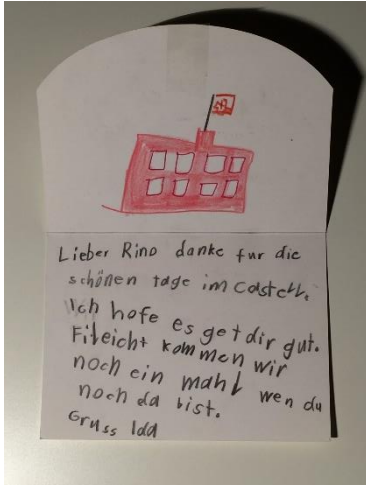 Lieber Rino danke für die
schönen tage im castell.
Ich hofe es get dir gut.
Fileicht kommen wir
noch ein mahl wen du
noch da bist.
Gruss Ida